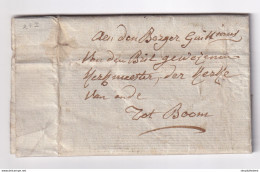 Aen den Borger Guilliaume
Van den Bril gewesenen
Kerkmeester, der Kerke
van onde
Tot Boom